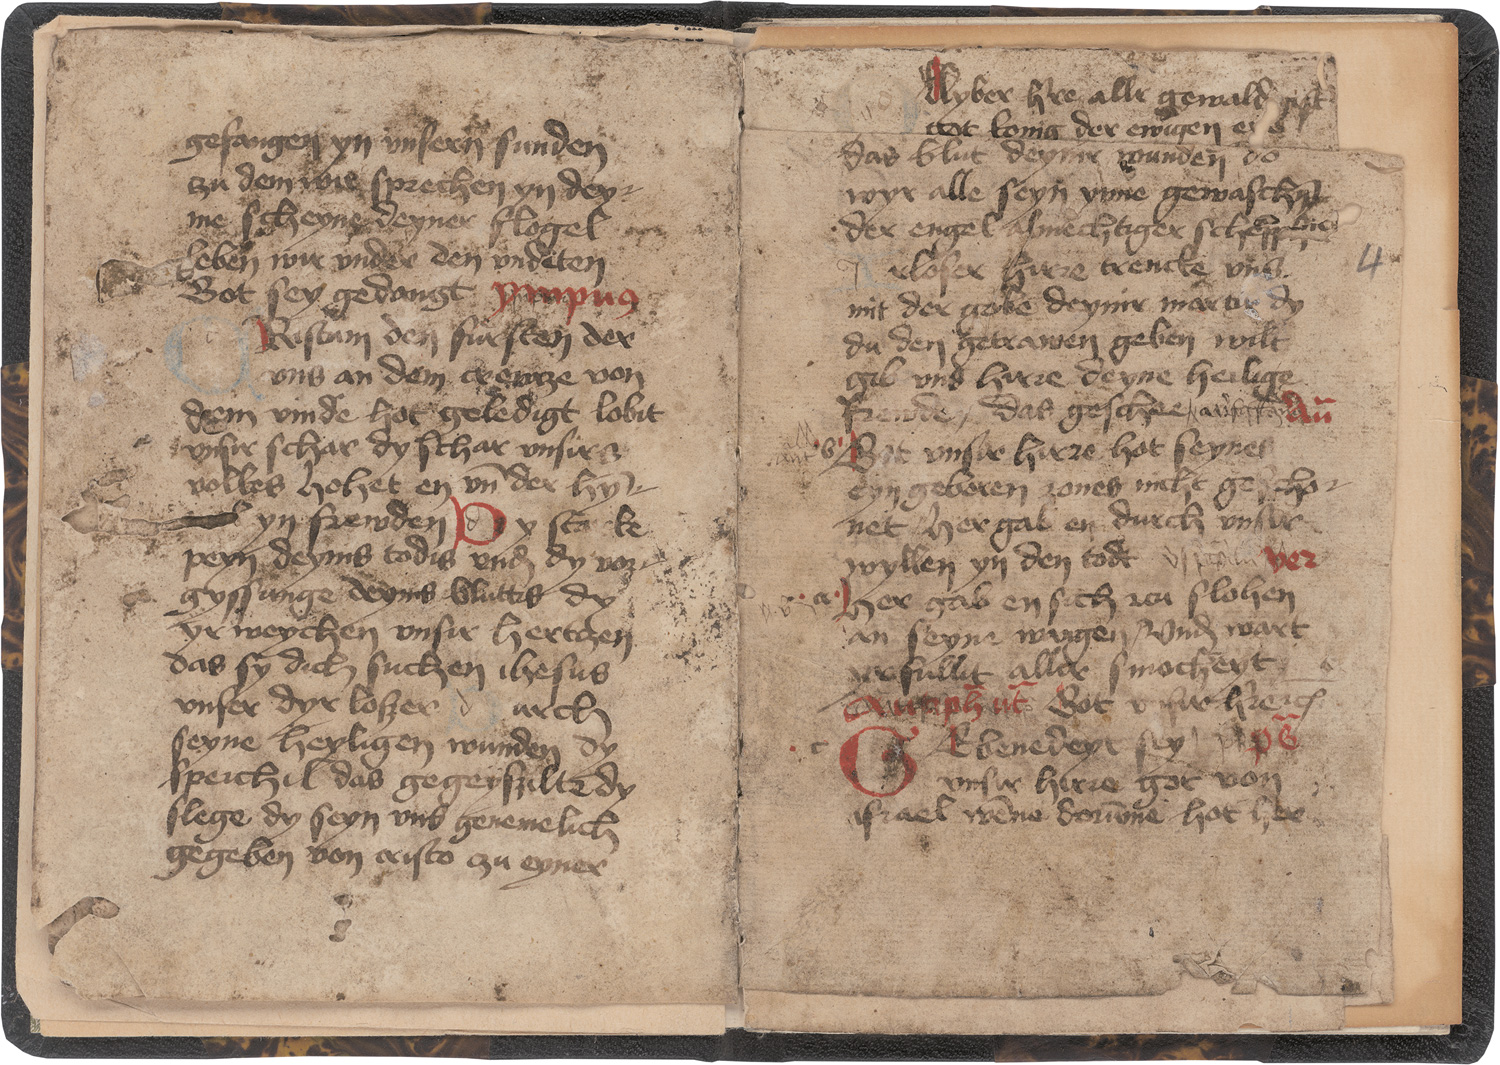 gefangen yn unsern sunden
zu dem wir sprechen yn dey-
ne scheyne deyner flogel
leben wir under den undeten
Got sey gedangt ympus
Ristum den fursten der
uns an dem crewtze von
dem vinde hot geledigt lobit
unsir schar dy schar unsirs
volkes hohet en vn̄ der hy-
yn frewden Dy starke
peyn deyms todis und dy vor-
gyssunge deyms bluttis dy
yr weychen unsir hertzen
das sy dich suchen ihesus
unser dyr lozer d urch
seyne heyligen wunden dy
speichil das gegeyszilte dy
slege dy seyn uns gemeynlich
gegeben von cristo czu eyner
Lyber hre allr gewald
got konig der ewigen ere
das blut deynir wunden do
wyr alle seyn ynne gewaschen
der engel almechtiger scheppher
rloser hirre trencke uns
mit der gobe deynir martir dy
du den getrawen geben wilt
gib uns hirre deyne heilige
frewde das geschee an̄
Got unsir hirre hot seynes
eyn geboren sones nicht gescho-
net her gab en durch unsir
wyllen yn den todt ver
Her gab en sich czu slohen
an seyne wangen und wart
irfullit allir smocheyt
Antiph ut Got unsir hirre
Gebenedeyt sey ps̄
unsir hirre got von
israel wēne dorūme hot her
4